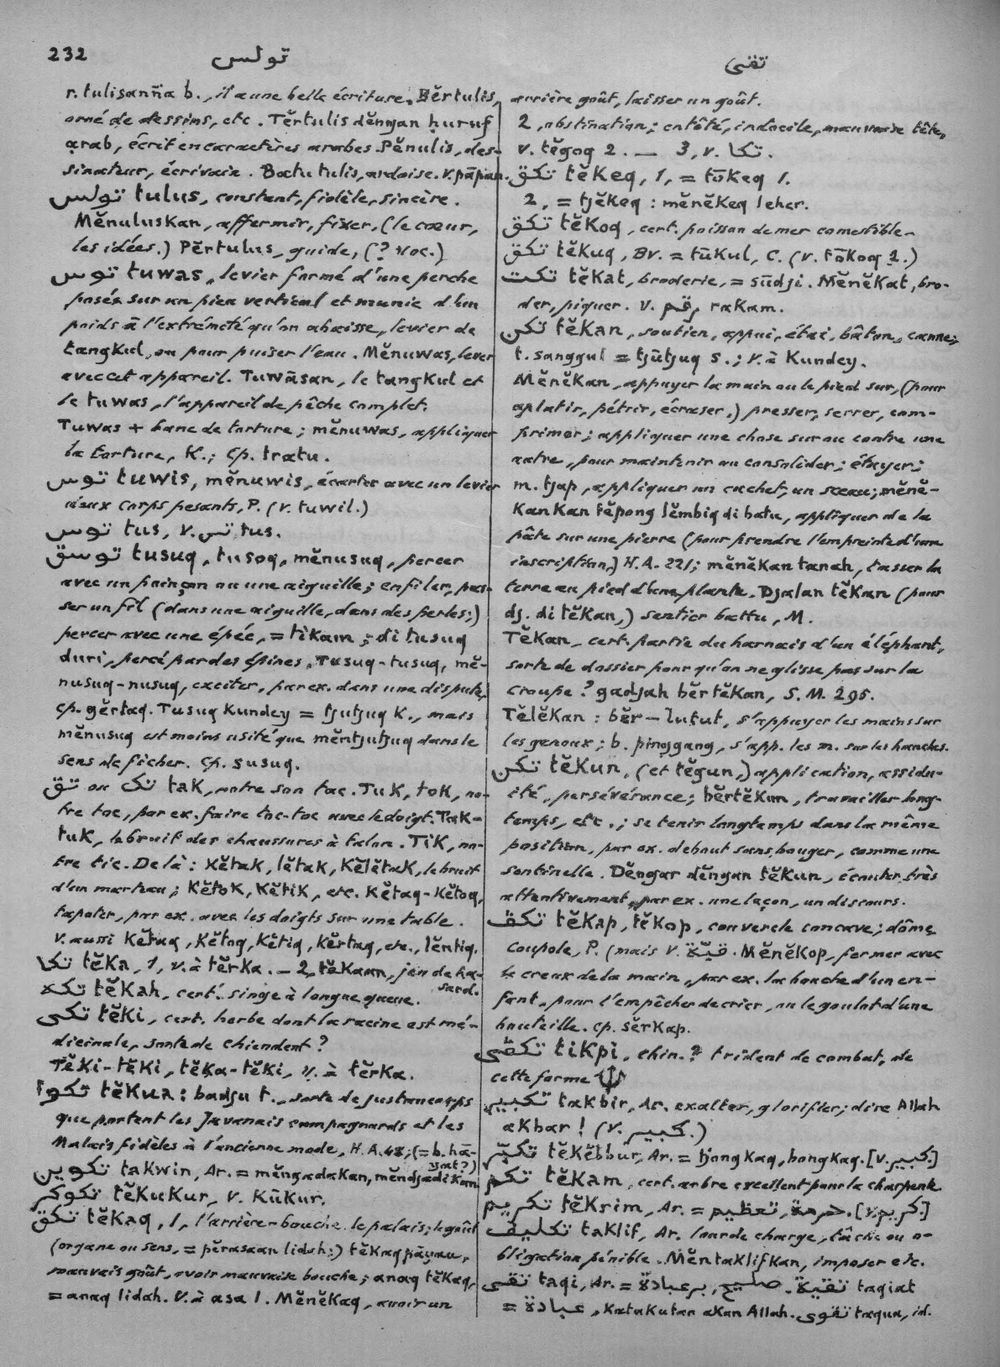 232
تولس
تقى
r. tulisanña b., il a une belle écriture. Bĕrtulis,
orné de dessins, etc. Tĕrtulis dĕngan ḥuruf
ạrab, écrit en caractères arabes. Pĕnulis, des-
sinateur, écrivain. Batu tulis, ardoise. v. pāpan.
تولس tulus, constant, fidèle, sincère.
Mĕnuluskan, affermir, fixer, (le cœur,
les idées.) Pĕrtulus, guide, (? voc.)
توس tuwas, levier formé d'une perche
posée sur un pieu vertical et munie d'un
poids à l'extrémité qu'on abaisse, levier de
tangkul, ou pour puiser l'eau. Mĕnuwas, lever
avec cet appareil. Tuwāsan, le tangkul et
le tuwas, l'appareil de pêche complet.
Tuwas + banc de torture; mĕnuwas, appliquer
la torture, K.; cp. tratu.
توس tuwis, mĕnuwis, écarter avec un levier
deux corps pesants, P. (v. tuwil.)
توس tus, v. تس tus.
توسق tusuq, tusoq, mĕnusuq, percer
avec un poinçon ou une aiguille; enfiler, pas-
ser un fil (dans une aiguille, dans des perles;)
percer avec une épée, = tikam; di tusuq
duri, percé par des épines. Tusuq-tusuq, mĕ-
nusuq-nusuq, exciter, par ex. dans une dispute,
cp. gĕrtaq. Tusuq kundey = tjutjuq k., mais
mĕnusuq est moins usité que mĕntjutjuq dans le
sens de ficher. Cp. susuq.
تق ou تک tak, notre son tac. Tuk, tok, no-
tre toc, par ex. faire toc-toc avec le doigt. Tak-
tuk, le bruit des chaussures à talon. Tik, no-
tre tic. De là: kĕtak, lĕtak, kĕlĕtak, le bruit
d'un marteau; kĕtok, kĕtik, etc. kĕtaq-kĕtoq,
tapoter, par ex. avec les doigts sur une table.
v. aussi kĕtuq, kĕtoq, kĕtiq, kĕrtaq, etc., lĕntiq.
تكا tĕka, 1, v. à tĕrka. — 2, tĕkaan, jeu de ha-
sard.
تكه tĕkah, cert. singe à longue queue.
تكى tĕki, cert. herbe dont la racine est mé-
dicinale, sorte de chiendent?
Tĕki-tĕki, tĕka-tĕki, v. à tĕrka.
تكوا tĕkua: badju t., sorte de justaucorps
que portent les Javanais campagnards et les
Malais fidèles à l'ancienne mode, H.A. 48; (= b. hā-
jat?)
تكوين takwin, Ar. = mĕngadakan, mĕndjadikan.
تكوكر tĕkukur, v. kūkur.
تكق tĕkaq, 1, l'arrière-bouche, le palais; le goût
(organe ou sens, = pĕrasaan lidah;) tĕkaq pāyau,
mauvais goût, avoir mauvaise bouche; anaq tĕkaq,
= anaq lidah. v. à asa 1. Mĕnĕkaq, avoir un
arrière goût, laisser un goût.
2, obstination; entêté, indocile, mauvaise tête,
v. tĕgoq 2. — 3, v. تكا.
تكق tĕkeq, 1, = tōkeq 1.
2, = tjĕkeq: mĕnĕkeq leher.
تكق tĕkoq, cert. poisson de mer comestible.
تكق tĕkuq, Bv. = tūkul, C. (v. tōkoq 1.)
تكت tĕkat, broderie, = sūdji. Mĕnĕkat, bro-
der, piquer. v. رقم rakam.
تكن tĕkan, soutien, appui, étai, bâton, canne;
t. sanggul = tjūtjuq s.; v. à kundey.
Mĕnĕkan, appuyer la main ou le pied sur, (pour
aplatir, pétrir, écraser,) presser, serrer, com-
primer; appliquer une chose sur ou contre une
autre, pour maintenir ou consolider; étayer;
m. tjap, appliquer un cachet, un sceau; mĕnĕ-
kankan tĕpong lĕmbiq di batu, appliquer de la
pâte sur une pierre (pour prendre l'empreinte d'une
inscription,) H.A. 221; mĕnĕkan tanah, tasser la
terre au pied d'une plante. Djalan tĕkan (pour
dj. di tĕkan,) sentier battu, M.
Tĕkan, cert. partie du harnais d'un éléphant,
sorte de dossier pour qu'on ne glisse pas sur la
croupe? gadjah bĕrtĕkan, S.M. 295.
Tĕlĕkan: bĕr—lutut, s'appuyer les mains sur
les genoux; b. pinggang, s'app. les m. sur les hanches.
تكن tĕkun, (et tĕgun,) application, assidu-
ité, persévérance; bĕrtĕkun, travailler long-
temps, etc.; se tenir longtemps dans la même
position, par ex. debout sans bouger, comme une
sentinelle. Dĕngar dĕngan tĕkun, écouter très
attentivement, par ex. une leçon, un discours.
تكڤ tĕkap, tĕkop, couvercle concave; dôme,
coupole, P. (mais v. قبّة. Mĕnĕkop, fermer avec
le creux de la main, par ex. la bouche d'un en-
fant, pour l'empêcher de crier, ou le goulot d'une
bouteille. cp. sĕrkap.
تكڤى tikpi, chin.? trident de combat, de
cette forme
تكبير takbir, Ar. exalter, glorifier; dire Allah
akbar! (v. كبير.)
تكبّر tĕkĕbbur, Ar. = tjongkaq, bongkaq. [v. كبير.]
تكم tĕkam, cert. arbre excellent pour la charpente.
تكريم tĕkrim, Ar. = حرمة, تعظيم. [v. كريم.]
تكليف taklif, Ar. lourde charge, tâche ou o-
bligation pénible. Mĕntaklifkan, imposer etc.
تقى taqi, Ar. = صليح, برعبادة. تقية taqiat
= عبادة, katakutan akan Allah. تقوى taqua, id.